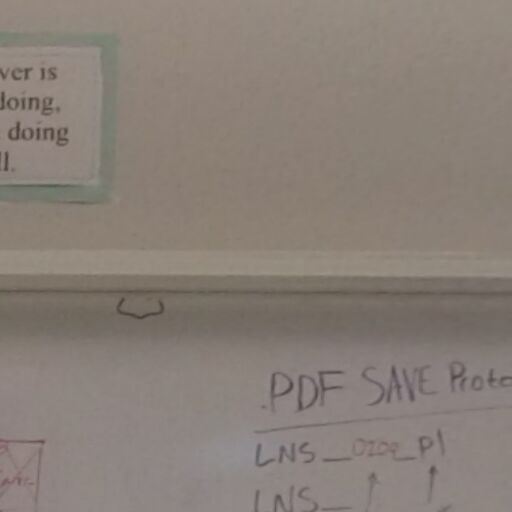 ver is
doing,
doing
ll.
.PDF SAVE Proto
LNS_0209_P1
LNS_